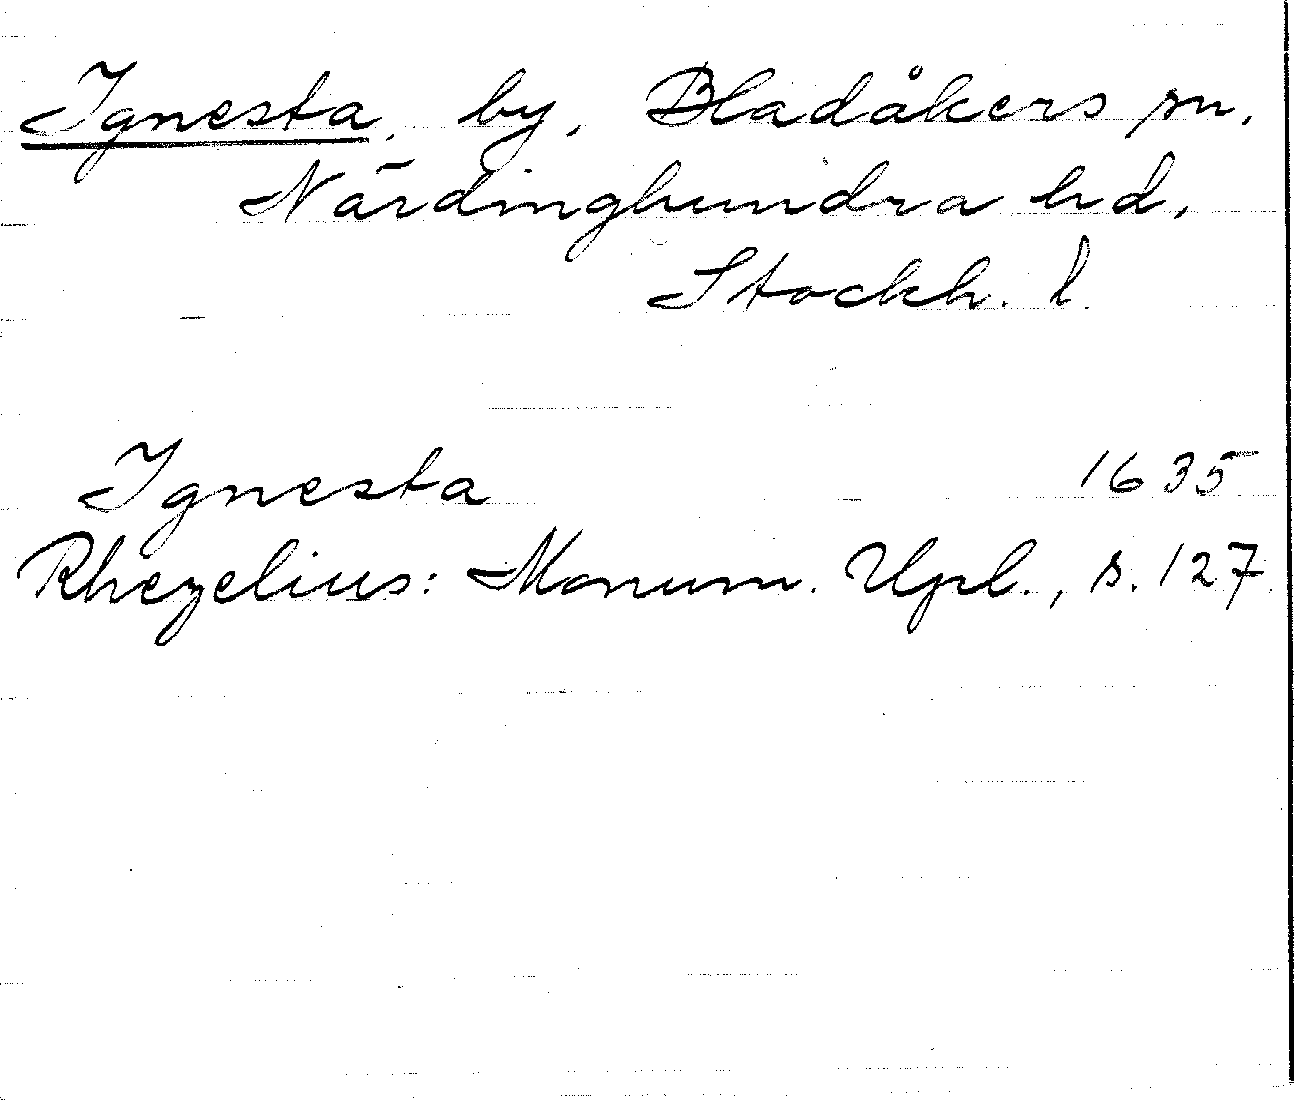 Ignesta, by, Bladåkers sn,
Närdinghundra hd,
Stockh. l.
Ignesta 1635
Rhezelius: Monum. Upl., s. 127.